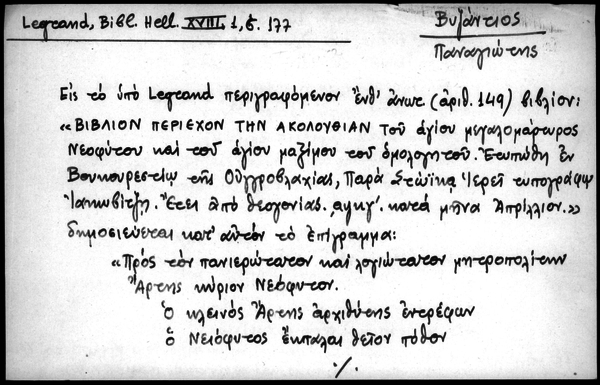 Legrand, Bibl. Hell. XVIII, 1, σ. 177
Βυζάντιος
Παναγιώτης
Εἰς τὸ ὑπὸ Legrand περιγραφόμενον ἔνθ' ἄνωτ (ἀριθ. 149) βιβλίον:
«ΒΙΒΛΙΟΝ ΠΕΡΙΕΧΟΝ ΤΗΝ ΑΚΟΛΟΥΘΙΑΝ τοῦ ἁγίου μεγαλομάρτυρος
Νεοφύτου καὶ τοῦ ἁγίου μαξίμου τοῦ ὁμολογητοῦ. Ἐτυπώθη ἐν
Βουκουρεστίῳ τῆς Οὐγγροβλαχίας, Παρὰ Στώϊκα Ἱερεῖ τυπογράφῳ
Ἰακωβίτζη. Ἔτει ἀπὸ θεογονίας. ͵αψκγ'. κατὰ μῆνα Ἀπρίλλιον.»
δημοσιεύεται κατ' αὐτὸν τὸ ἐπίγραμμα:
«Πρὸς τὸν πανιερώτατον καὶ λογιώτατον μητροπολίτην
Ἄρτης κύριον Νεόφυτον.
Ὁ κλεινὸς Ἄρτης ἀρχιθύτης ἐντρέφων
ὁ Νεόφυτος ἔκπαλαι θεῖον πόθον
./.